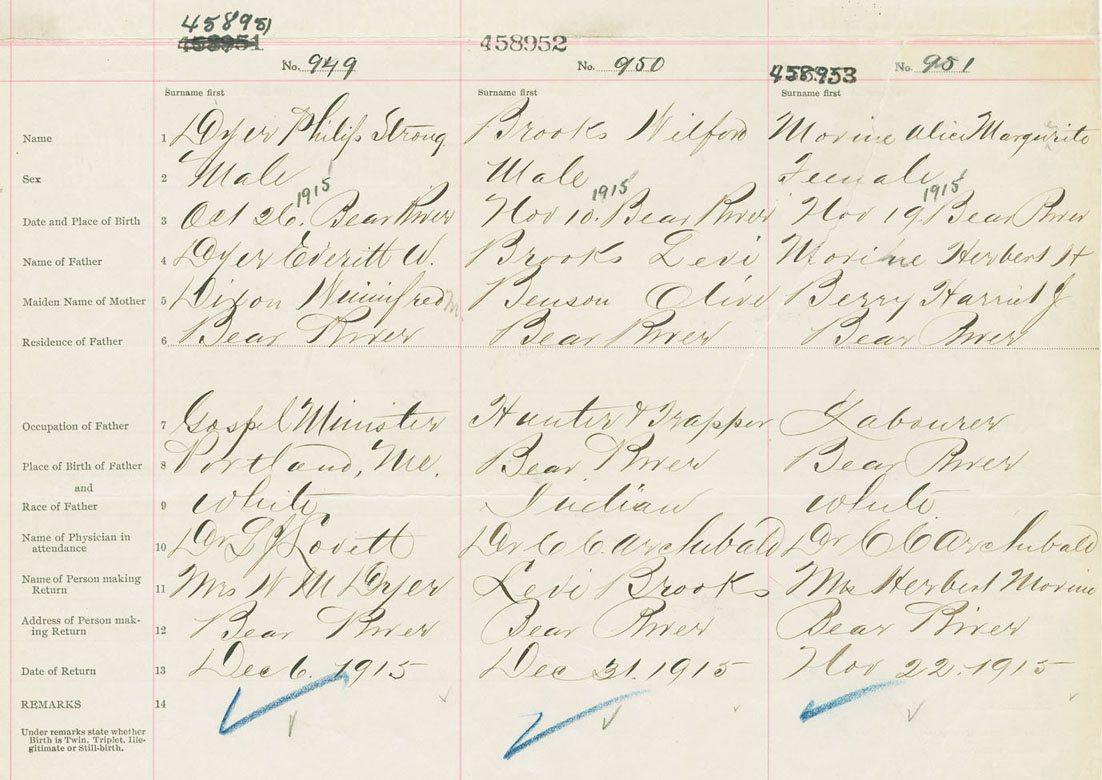 458951
458951 458952
No. 949 No. 950 458953 No. 951
Surname first Surname first Surname first
Name 1 Dyer Philip Strong Brooks Wilford Morine Alice Marguerite
Sex 2 Male Male Female
1915 1915 1915
Date and Place of Birth 3 Oct 26. Bear River Nov 10. Bear River Nov 19. Bear River
Name of Father 4 Dyer Everitt W. Brooks Levi Morine Herbert H
Maiden Name of Mother 5 Dixon Winnifred M. Benson Olive Berry Harriet J
Residence of Father 6 Bear River Bear River Bear River
Occupation of Father 7 Gospel Minister Hunter & Trapper Labourer
Place of Birth of Father 8 Portland, Me. Bear River Bear River
and
Race of Father 9 White Indian White
Name of Physician in
attendance 10 Dr L J Lovett Dr C C Archibald Dr C C Archibald
Name of Person making
Return 11 Mrs W M Dyer Levi Brooks Mrs Herbert Morine
Address of Person mak-
ing Return 12 Bear River Bear River Bear River
Date of Return 13 Dec 6. 1915 Dec 31. 1915 Nov 22. 1915
REMARKS 14
Under remarks state whether
Birth is Twin, Triplet, Ille-
gitimate or Still-birth.